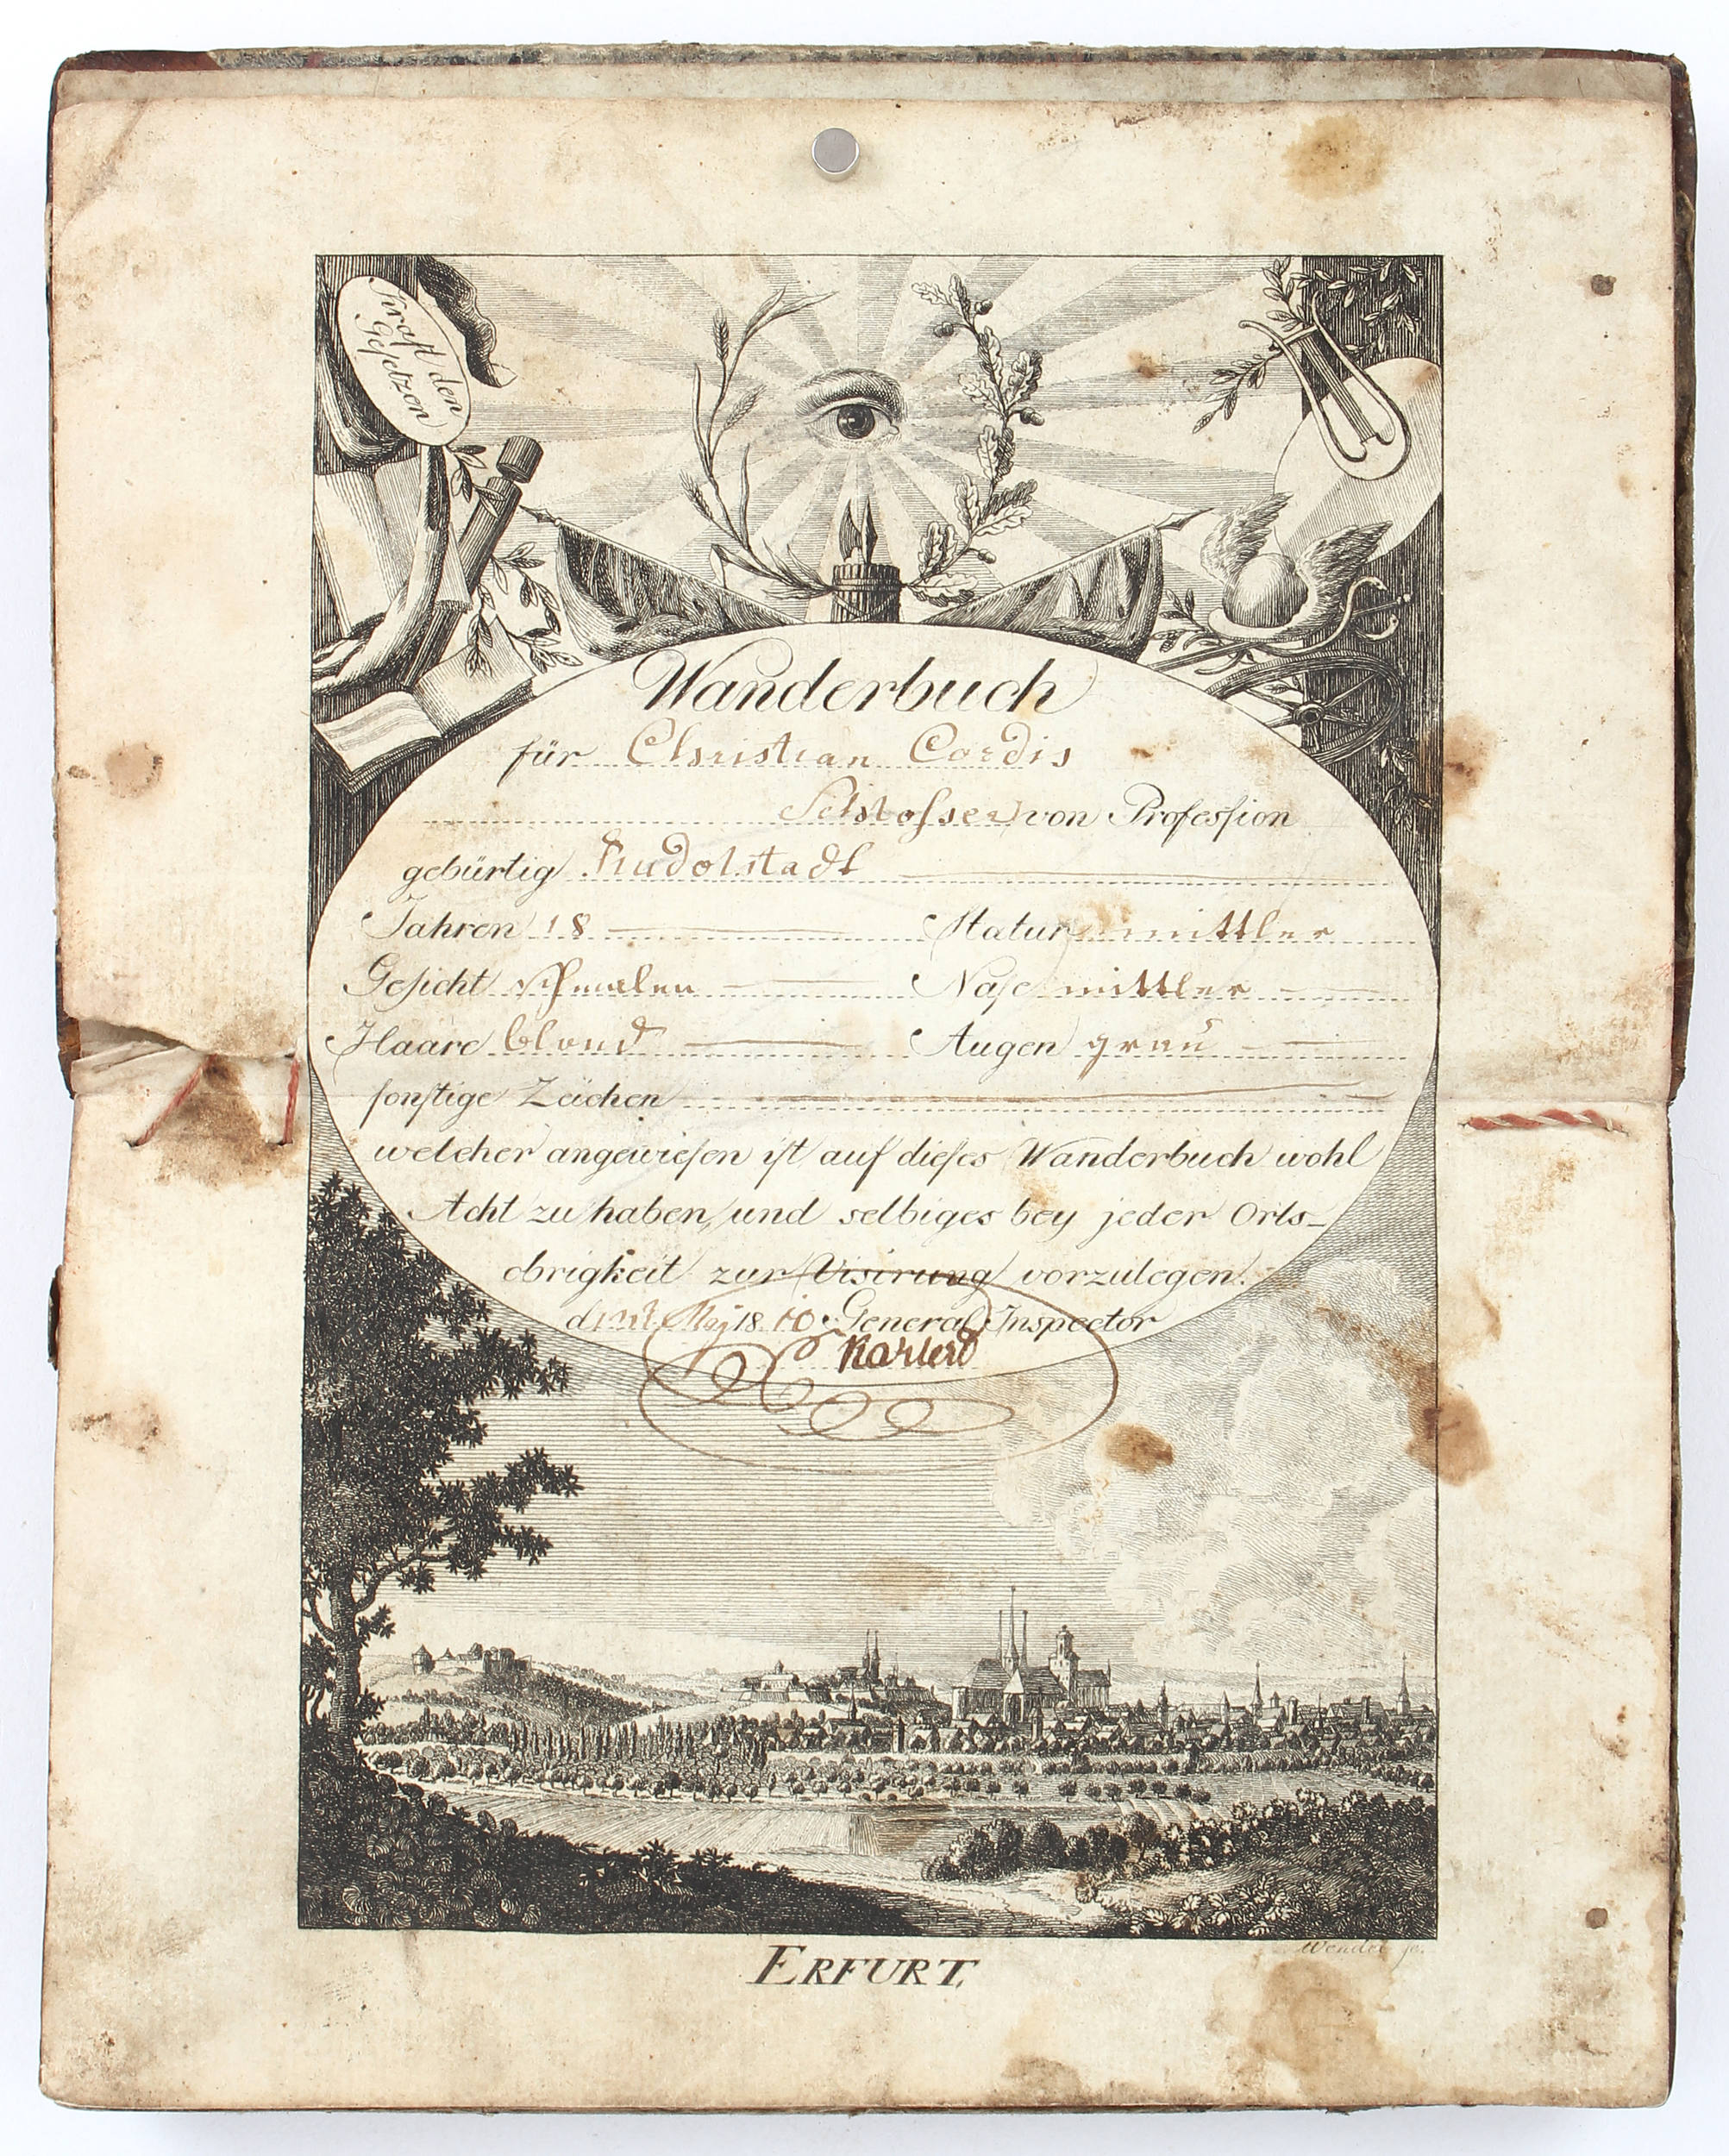 Kraft den
Gesetzen
Wanderbuch
für Christian Cordis
Schlosser von Profession
gebürtig Rudolstadt
Jahren 18 Statur mittler
Gesicht schmalen Nase mittler
Haare blond Augen grau
sonstige Zeichen
welcher angewiesen ist auf dieses Wanderbuch wohl
Acht zu haben, und selbiges bey jeder Orts-
obrigkeit zur Visirung vorzulegen.
d May 1810. General Inspector
ERFURT
Wendel fc.